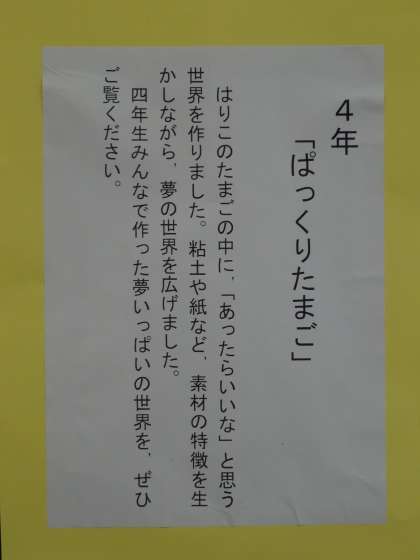 ４年
「ぱっくりたまご」
はりこのたまごの中に、「あったらいいな」と思う
世界を作りました。粘土や紙など、素材の特徴を生
かしながら、夢の世界を広げました。
四年生みんなで作った夢いっぱいの世界を、ぜひ
ご覧ください。